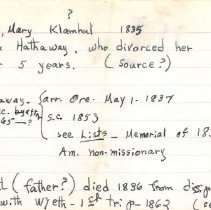 ?
, Mary Klamhut 1835
Hathaway, who divorced her
r 5 years. (Source?)
away. arr. Ore. May 1-1837
S.C. 1853
65-?
see Lists - Memorial of 18
Am. non-missionary
t (father?) died 1836 from
with Wyeth - 1st trip-1862 (